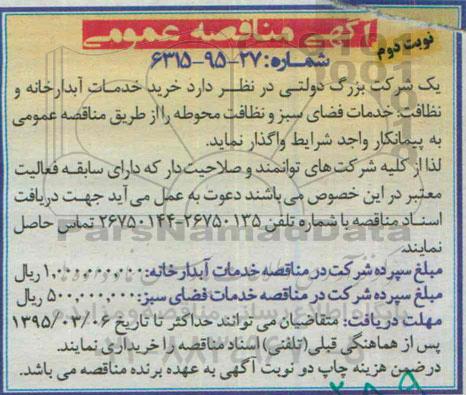 آگهی مناقصه عمومی
نوبت دوم
شماره: ۲۷-۹۵-۶۳۱۵
یک شرکت بزرگ دولتی در نظر دارد خرید خدمات آبدارخانه و
نظافت، خدمات فضای سبز و نظافت محوطه را از طریق مناقصه عمومی
به پیمانکار واجد شرایط واگذار نماید.
لذا از کلیه شرکت های توانمند و صلاحیت دار که دارای سابقه فعالیت
معتبر در این خصوص می باشند دعوت به عمل می آید جهت دریافت
اسناد مناقصه با شماره تلفن ۲۶۷۵۰۱۳۵-۲۶۷۵۰۱۴۴ تماس حاصل
نمایند.
ParsNamadData
مبلغ سپرده شرکت در مناقصه خدمات آبدارخانه: ۱,۰۰۰,۰۰۰,۰۰۰ ریال
مبلغ سپرده شرکت در مناقصه خدمات فضای سبز: ۵۰۰,۰۰۰,۰۰۰ ریال
مهلت دریافت: متقاضیان می توانند حداکثر تا تاریخ ۱۳۹۵/۰۳/۰۶
پس از هماهنگی قبلی (تلفنی) اسناد مناقصه را خریداری نمایند.
در ضمن هزینه چاپ دو نوبت آگهی به عهده برنده مناقصه می باشد.